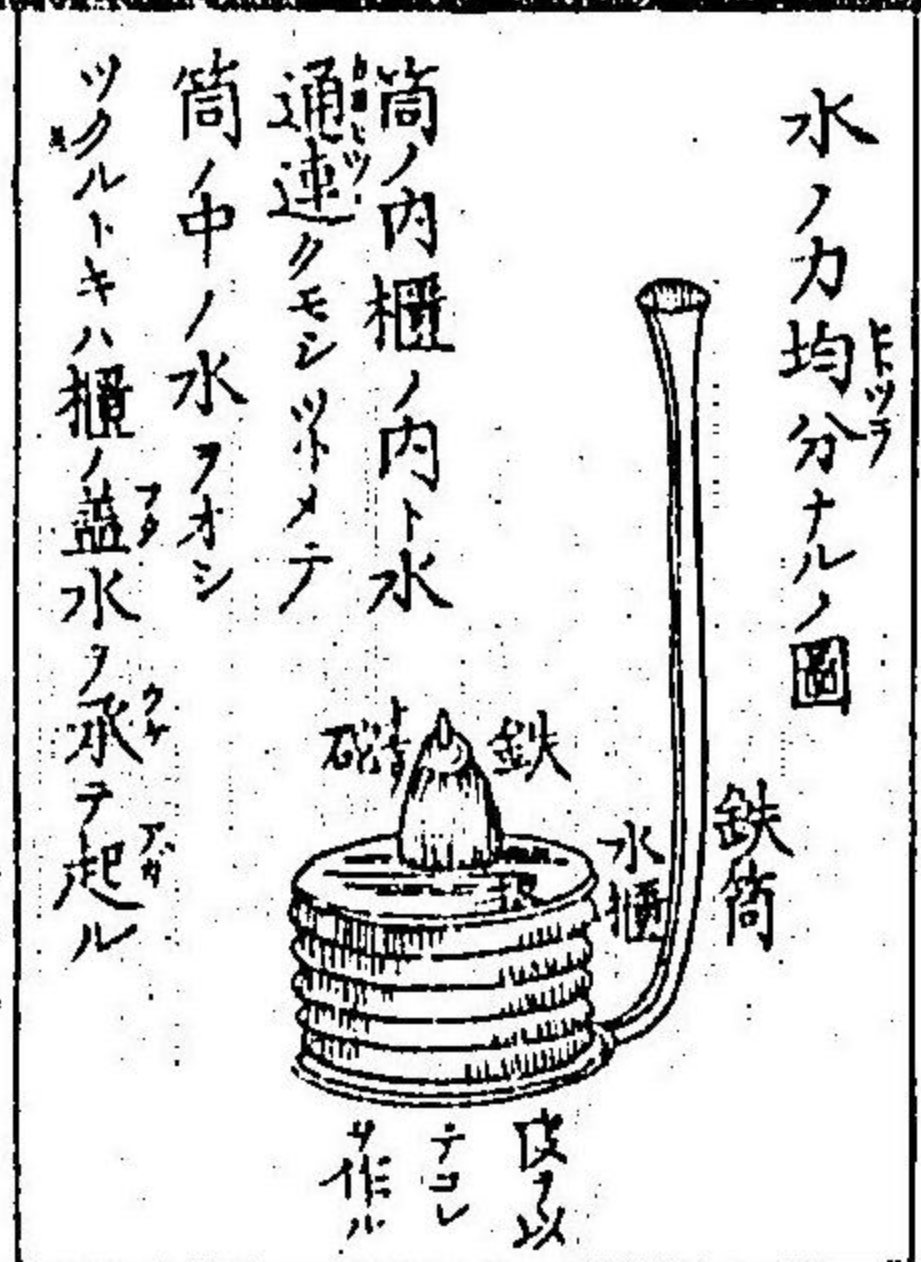 水ノ力均分ナルノ圖
ヒトツラ
鉄筒
水櫃
鉄
皮ヲ以
テコレ
ヲ作ル
筒ノ内櫃ノ内ト水
通連クモシツトメテ
筒ノ中ノ水ヲオシ
ツクルトキハ櫃ノ蓋水ヲ承テ起ル
フタ
ウケ
アガ